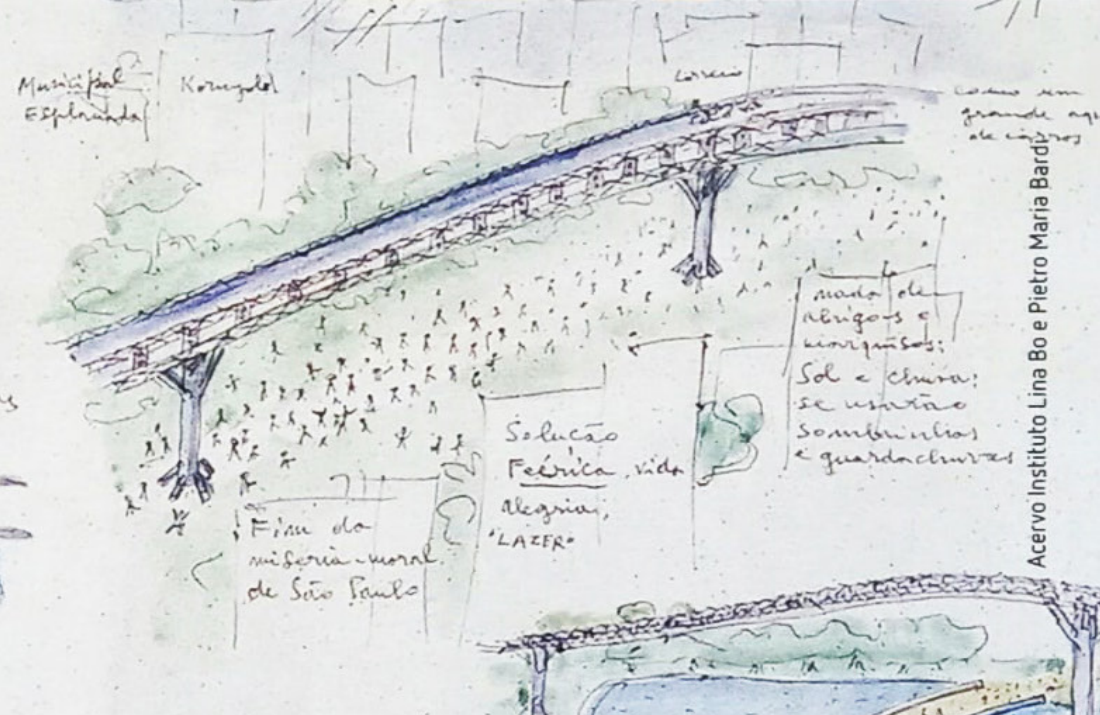 Municipal
Esplanada
Correio
como um
grande aqu
de carros
nada de
abrigos e
marquises:
Sol e chuva:
se usarão
sombrinhas
e guardachuvas
Solução
Feérica, vida
alegria,
"LAZER"
Fim da
miseria-moral
de São Paulo
Acervo Instituto Lina Bo e Pietro Maria Bardi